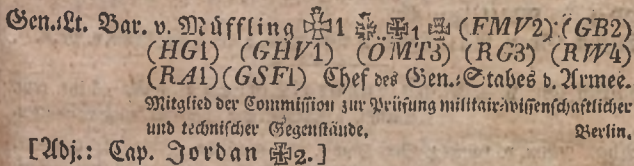 Gen.:Lt. Bar. v. Müffling ✠1 ✠ ✠1 ✠ (FMV2) (GB2)
(HG1) (GHV1) (OMT3) (RG3) (RW4)
(RA1) (GSF1) Chef des Gen.:Stabes d. Armee.
Mitglied der Commission zur Prüfung militair-wissenschaftlicher
und technischer Gegenstände, Berlin.
[Adj.: Cap. Jordan ✠2.]